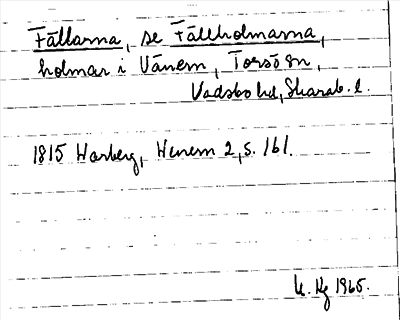 Fällarna, se Fällholmarna,
holmar i Vänern, Torsö sn,
Vadsbo hd, Skarab. l.
1815 Warberg, Wenern 2, s. 161.
U. Kg 1965.